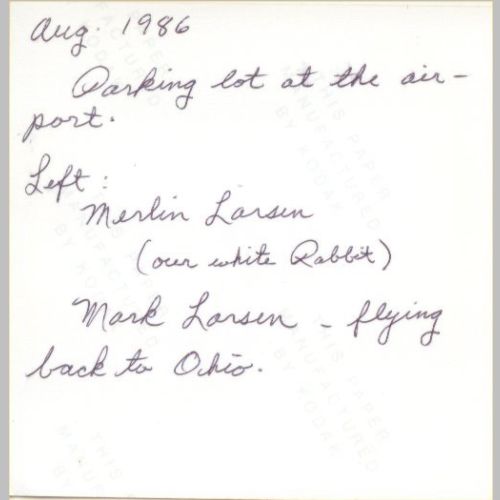 Aug. 1986
Parking lot at the air-
port.
Left:
Merlin Larsen
(our white Rabbit)
Mark Larsen - flying
back to Ohio.
THIS PAPER
MANUFACTURED
BY KODAK